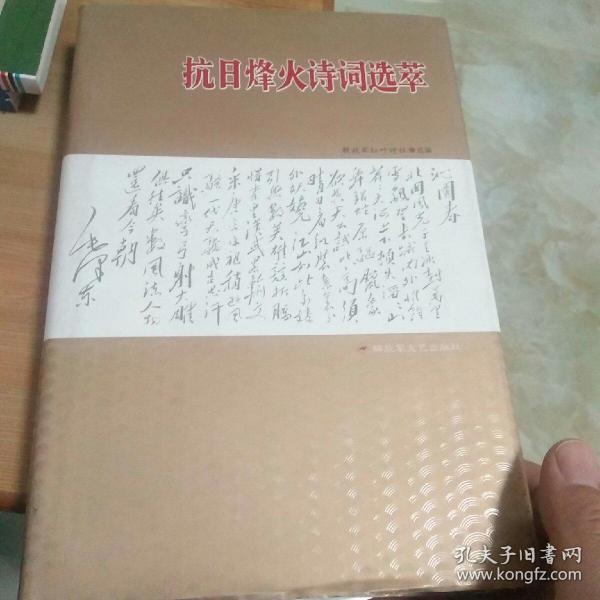 抗日烽火诗词选萃
解放军红叶诗社 选编
沁园春
北国风光千里冰封万里
雪飘望长城内外惟馀
莽莽大河上下顿失滔滔山
舞银蛇原驰蜡象
欲与天公试比高须
晴日看红装素裹
分外妖娆江山如此多娇
引无数英雄竞折腰
惜秦皇汉武略输文
采唐宗宋祖稍逊风
骚一代天骄成吉思汗
只识弯弓射大雕
俱往矣数风流人物
还看今朝
毛泽东
解放军文艺出版社
孔夫子旧书网
www.kongfz.com